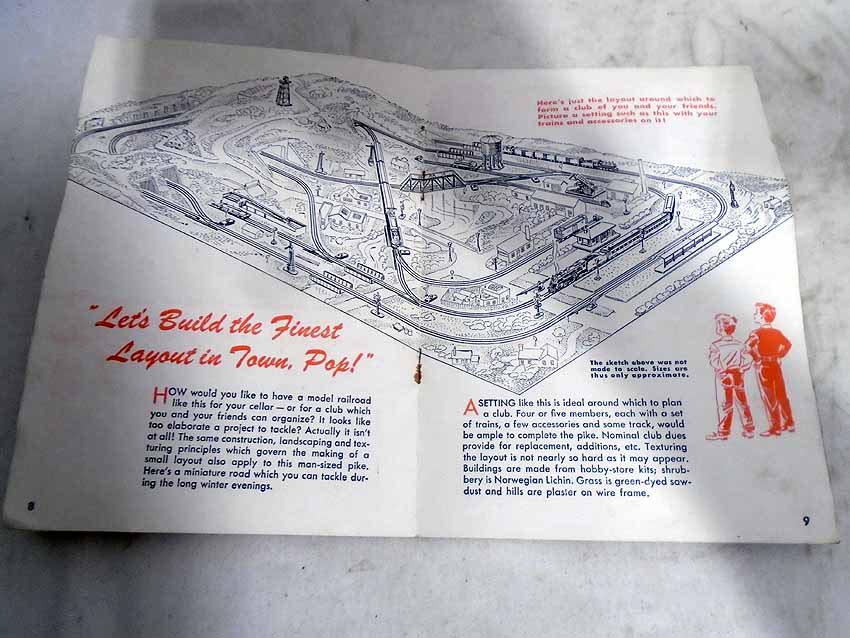 Here's just the layout around which to
form a club of you and your friends.
Picture a setting such as this with your
trains and accessories on it!
"Let's Build the Finest
Layout in Town, Pop!"
The sketch above was not
made to scale. Sizes are
thus only approximate.
HOW would you like to have a model railroad
like this for your cellar — or for a club which
you and your friends can organize? It looks like
too elaborate a project to tackle? Actually it isn't
at all! The same construction, landscaping and tex-
turing principles which govern the making of a
small layout also apply to this man-sized pike.
Here's a miniature road which you can tackle dur-
ing the long winter evenings.
8
A SETTING like this is ideal around which to plan
a club. Four or five members, each with a set
of trains, a few accessories and some track, would
be ample to complete the pike. Nominal club dues
provide for replacement, additions, etc. Texturing
the layout is not nearly so hard as it may appear.
Buildings are made from hobby-store kits; shrub-
bery is Norwegian Lichin. Grass is green-dyed saw-
dust and hills are plaster on wire frame.
9